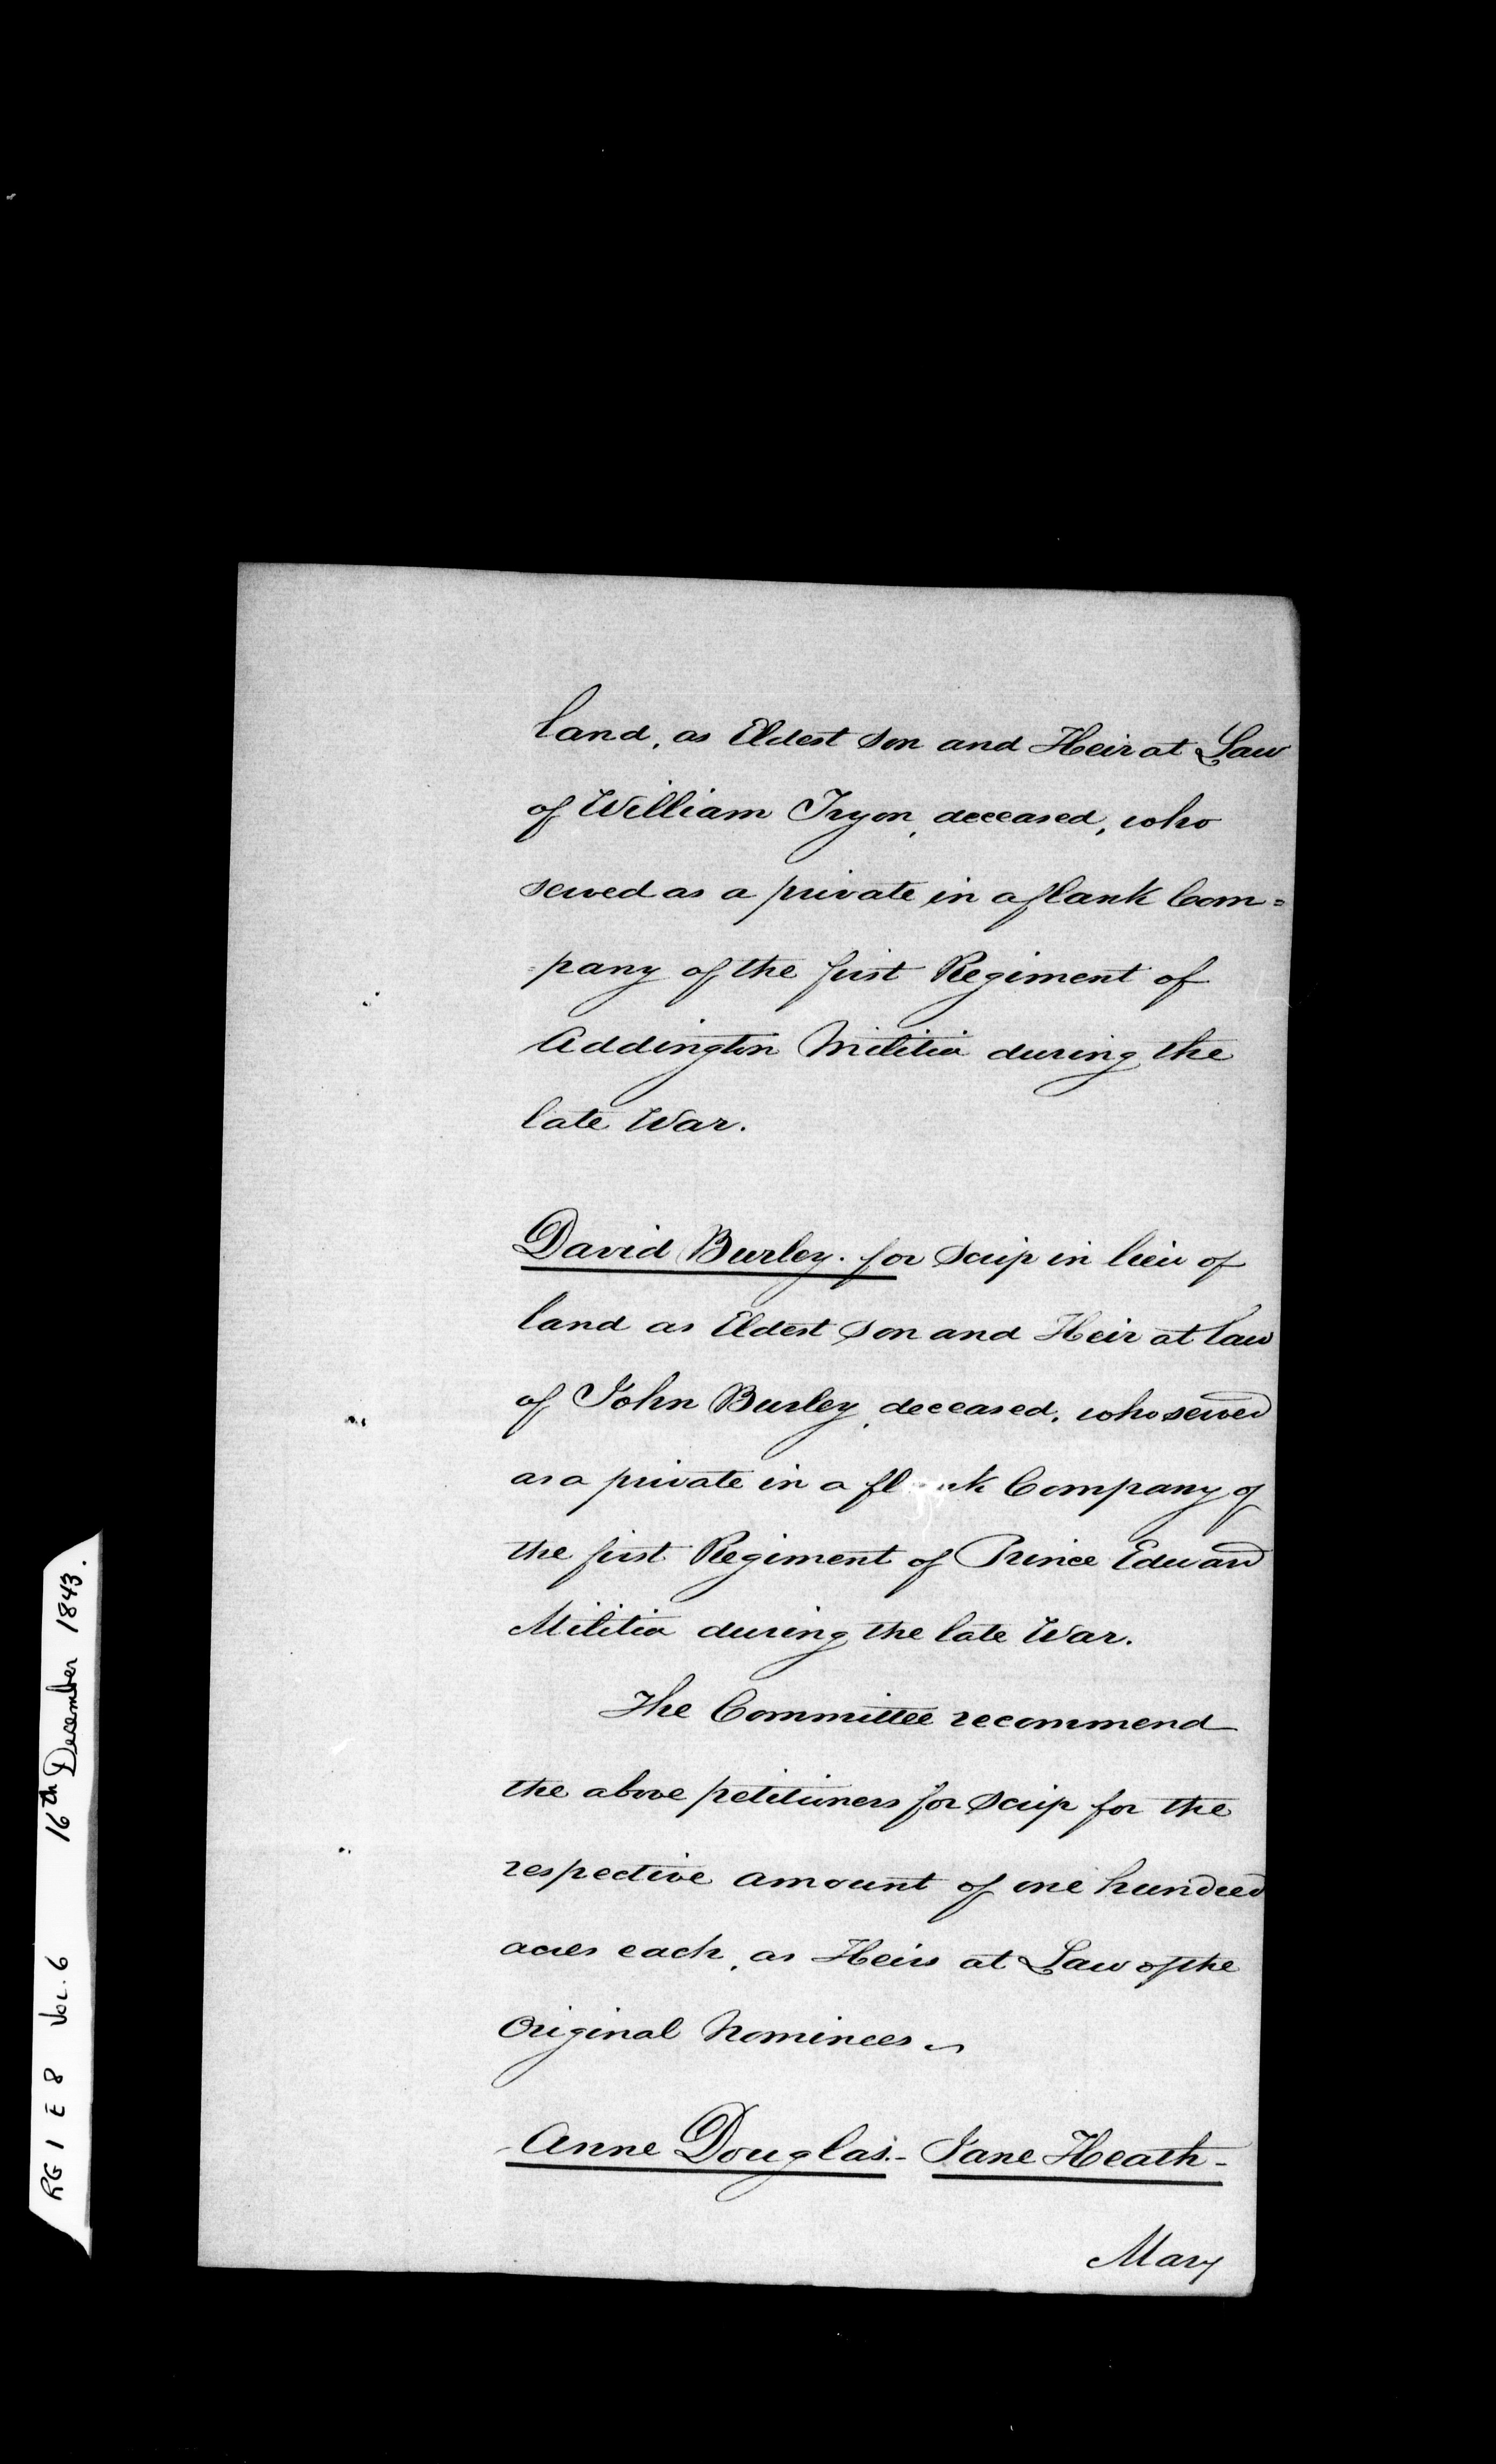 land, as Eldest son and Heir at Law
of William Tryon, deceased, who
served as a private in a flank Com=
=pany of the first Regiment of
Addington Militia during the
late War.
David Burley. for Scrip in lieu of
land as Eldest son and Heir at law
of John Burley, deceased, who served
as a private in a flank Company of
the first Regiment of Prince Edward
Militia during the late War.
The Committee recommend
the above petitioners for scrip for the
respective amount of one hundred
acres each, as Heirs at Law of the
Original Nominees
Anne Douglas.- Jane Heath-
Mary
RG 1 E 8 Vol. 6 16th December 1843.